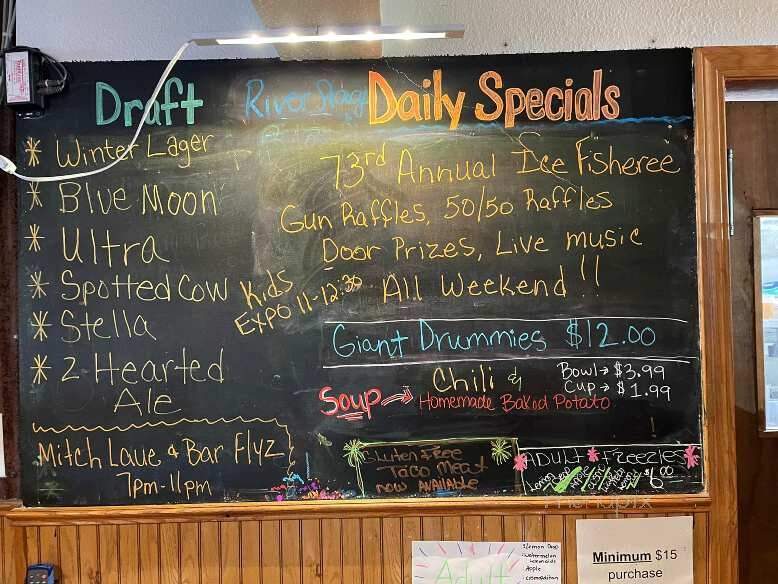 Draft
River Stage
Daily Specials
* Winter Lager
* Blue Moon
* Ultra
* Spotted Cow
* Stella
* 2 Hearted
Ale
Mitch Laue & Bar Flyz
7pm-11pm
73rd Annual Ice Fisheree
Gun Raffles, 50/50 Raffles
Door Prizes, Live music
All Weekend!!
Kids
Expo 11-12:30
Giant Drummies $12.00
Soup → Chili &
Homemade Baked Potato
Bowl → $3.99
Cup → $1.99
Gluten Free
Taco Meat
now Available
ADULT * Freezies
$6.00
Adult
Watermelon
Lemonaids
Apple
Minimum $15
purchase